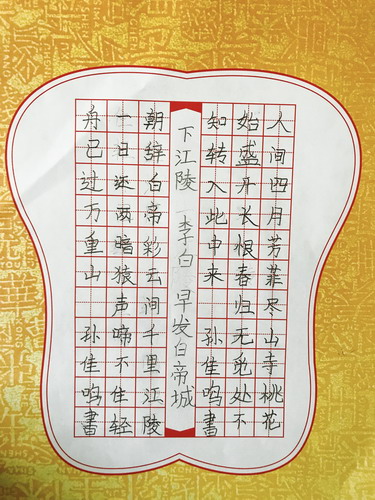 人间四月芳菲尽山寺桃花
始盛开长恨春归无觅处不
知转入此中来 孙佳鸣书
下江陵 李白 早发白帝城
朝辞白帝彩云间千里江陵
一日还两暗猿声啼不住轻
舟已过万重山 孙佳鸣书